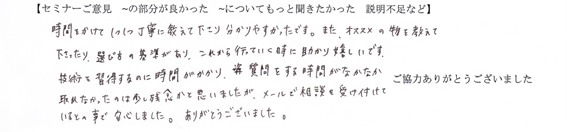 【セミナーご意見　~の部分が良かった　~についてもっと聞きたかった　説明不足など】
時間をかけて1つ1つ丁寧に教えて下さり分かりやすかったです。また、オススメの物を教えて
下さったり、選び方の基準があり、これから行っていく時に助かり嬉しいです。
技術を習得するのに時間がかかり、質問をする時間がなかなか
取れなかったのは少し残念かと思いましたが、メールで相談を受け付けて
いるとの事で安心しました。ありがとうございました。
ご協力ありがとうございました